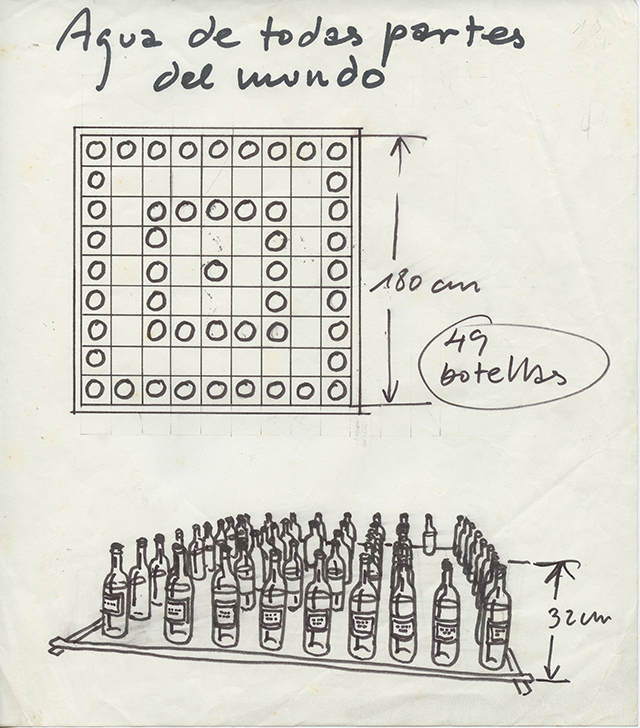 Agua de todas partes
del mundo
180 cm
49
botellas
32 cm